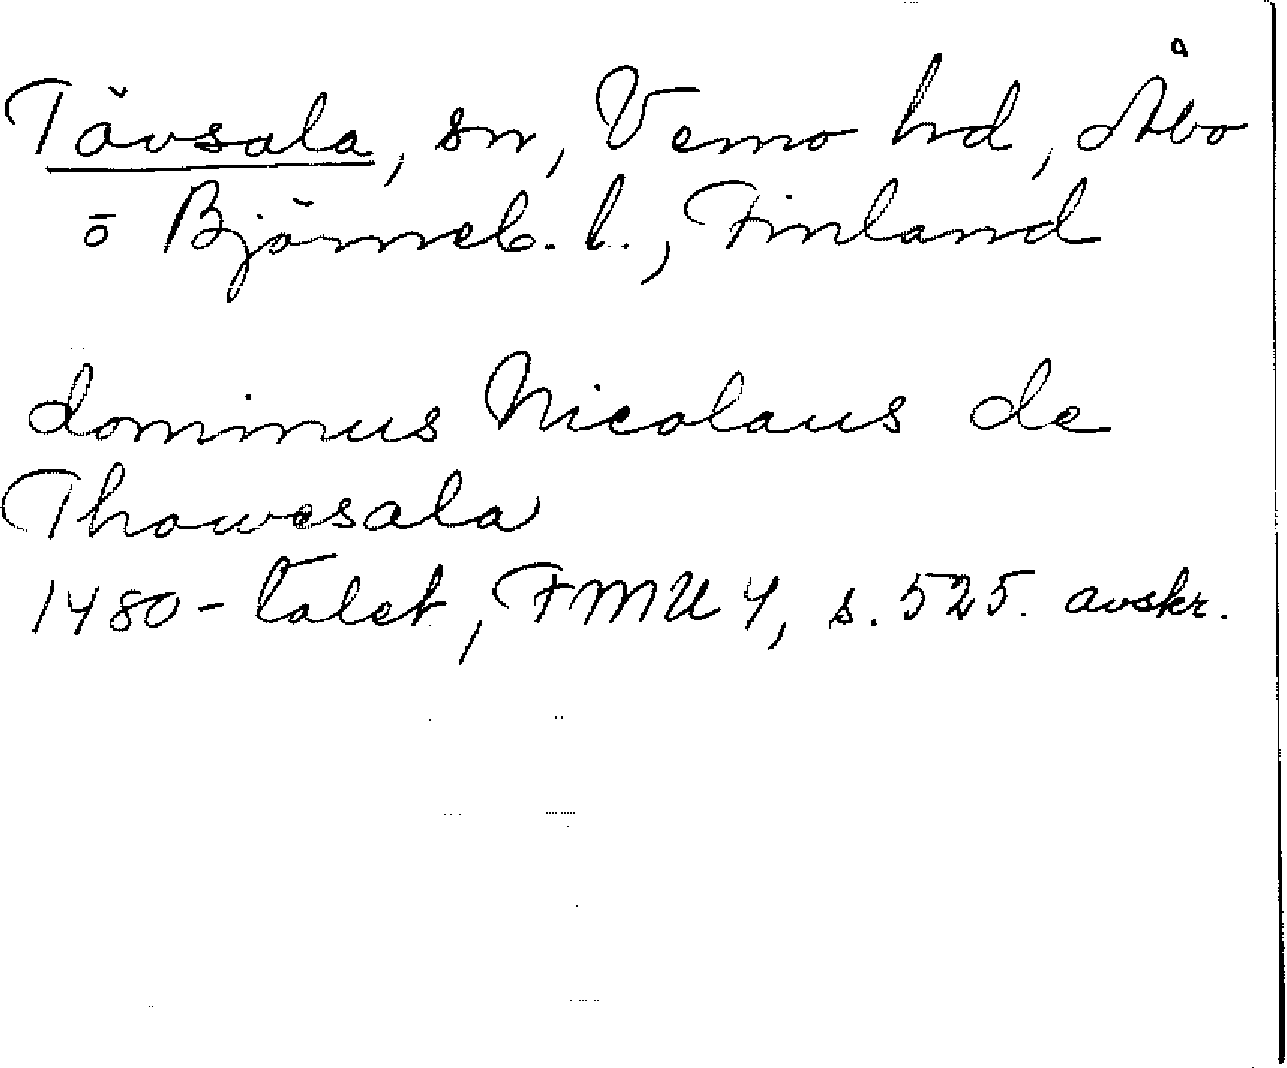 Tövsala, sn, Vemo hd, Åbo
o Björneb. l., Finland
dominus Nicolaus de
Thowesala
1480-talet, FMU 4, s. 525. avskr.